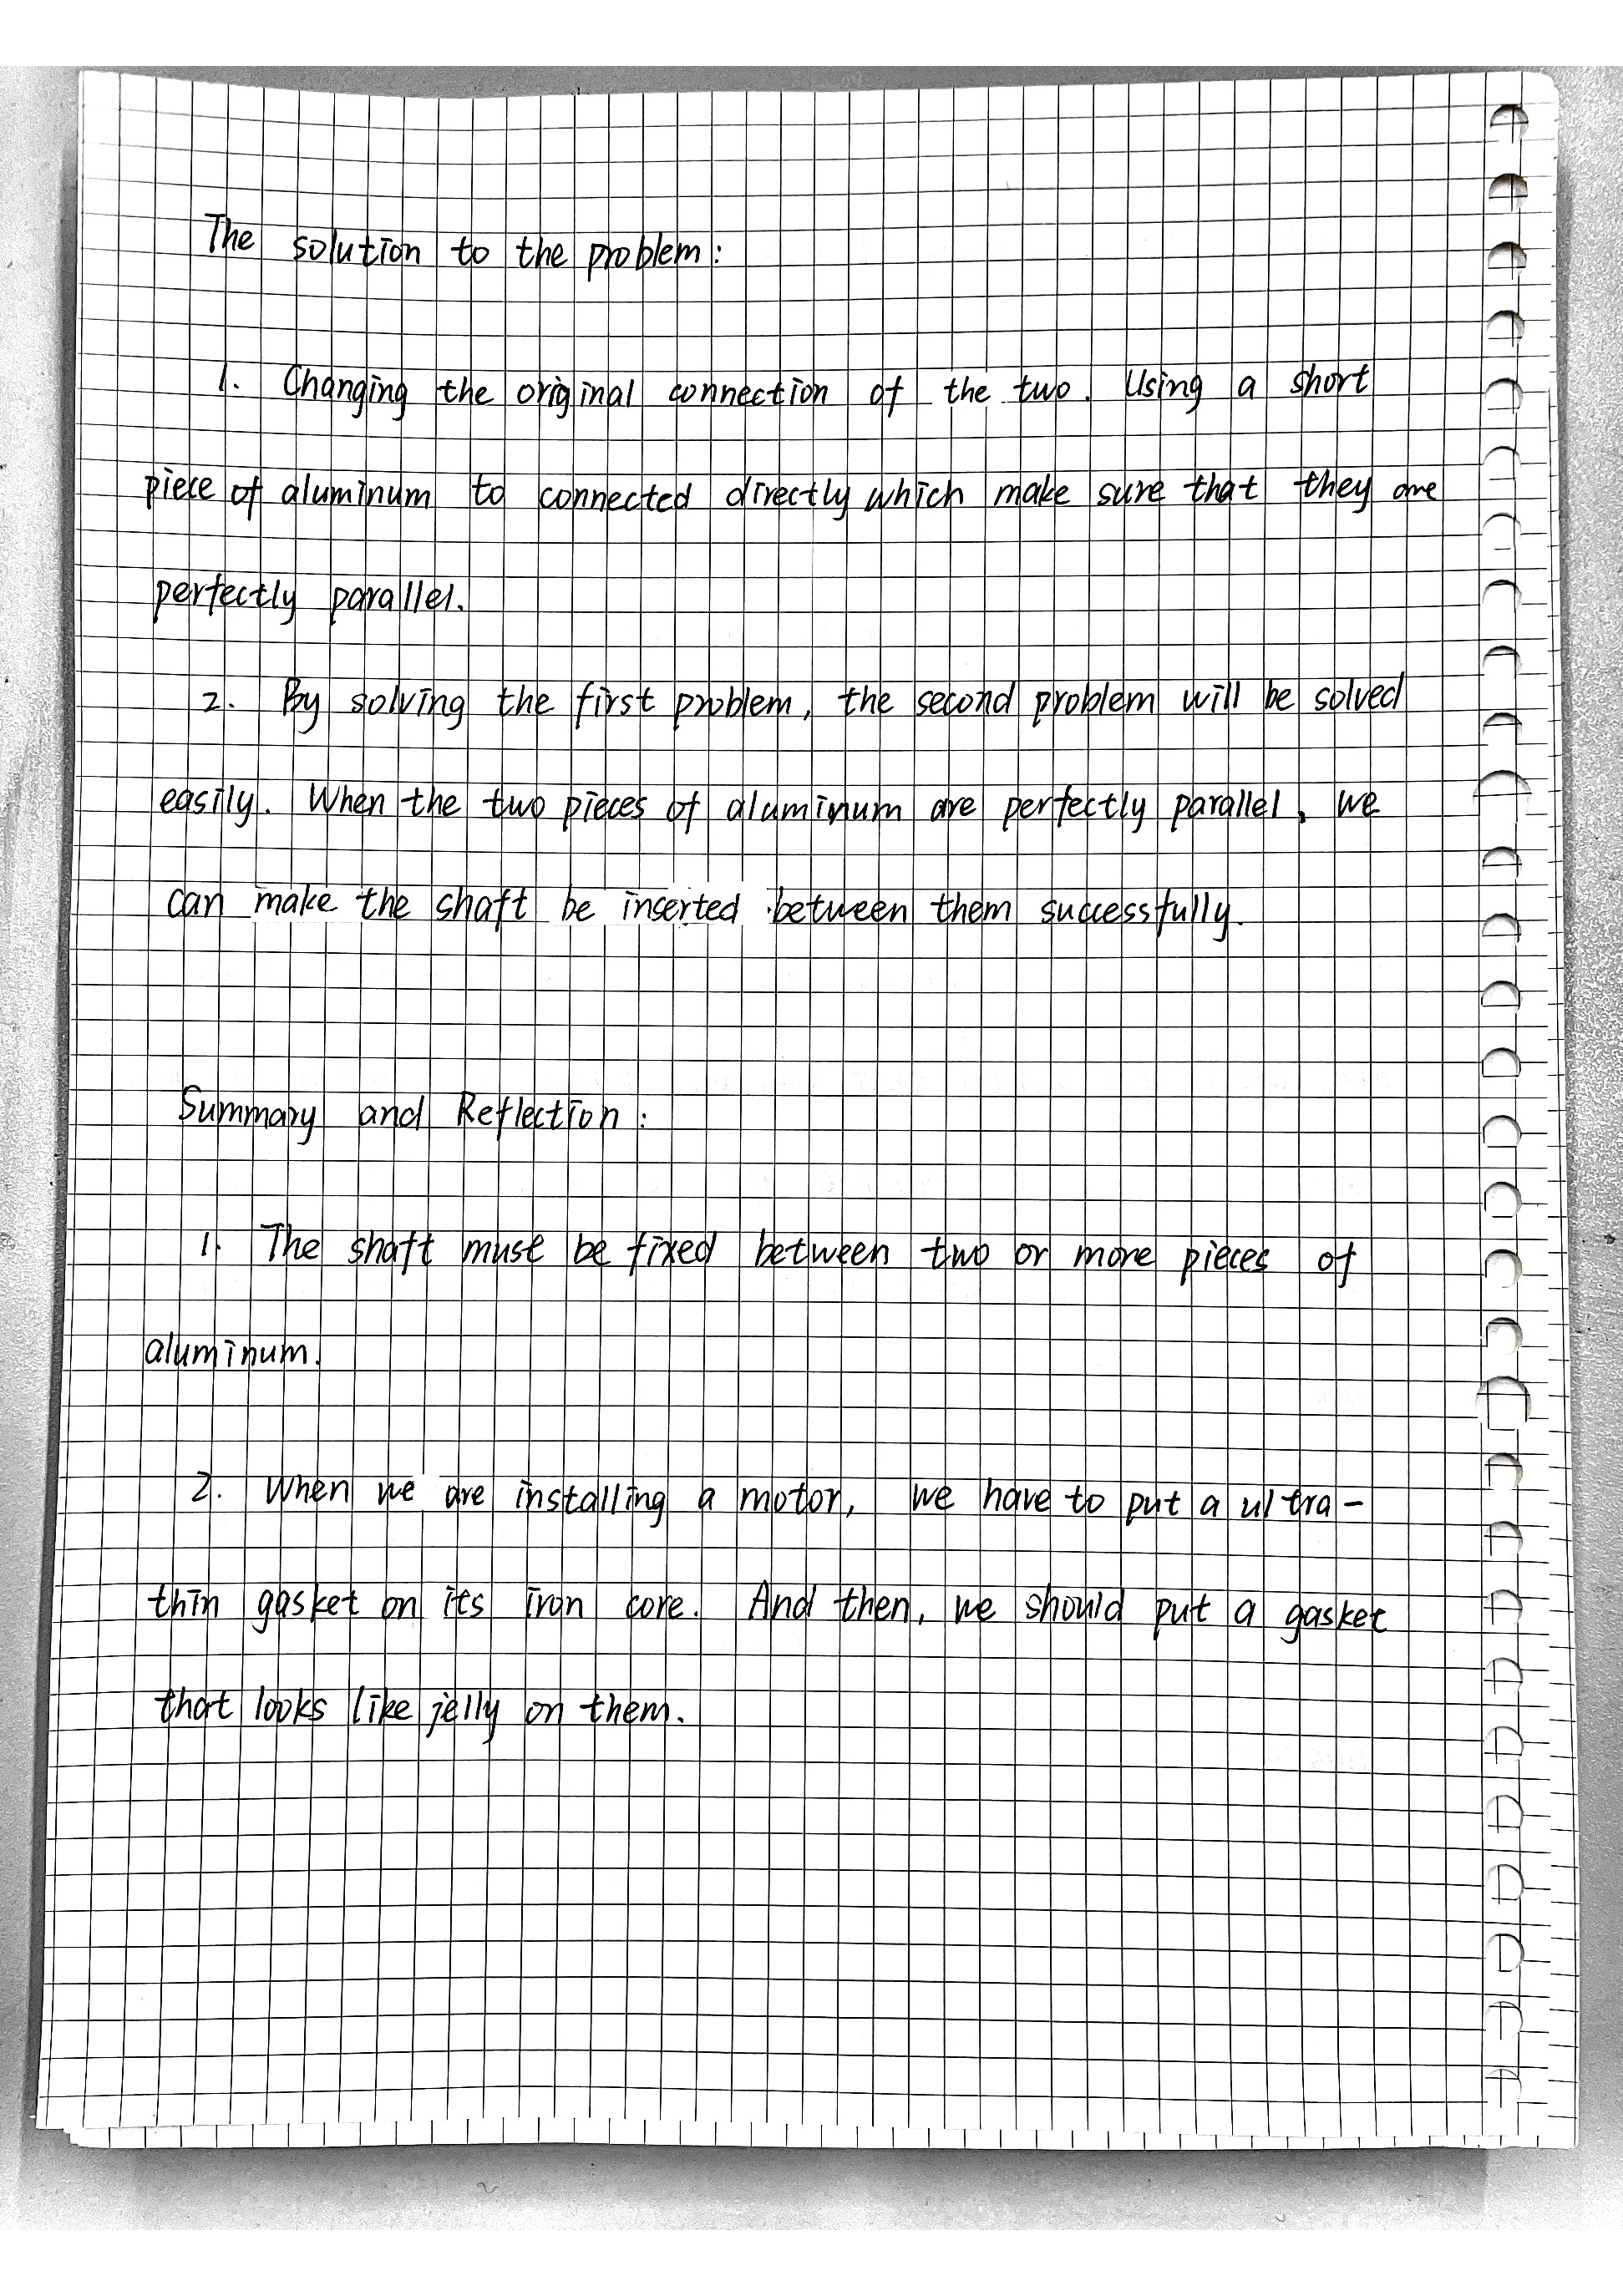 The solution to the problem:
1. Changing the original connection of the two. Using a short
piece of aluminum to connected directly which make sure that they are
perfectly parallel.
2. By solving the first problem, the second problem will be solved
easily. When the two pieces of aluminum are perfectly parallel, we
can make the shaft be inserted between them successfully.
Summary and Reflection:
1. The shaft must be fixed between two or more pieces of
aluminum.
2. When we are installing a motor, we have to put a ultra-
thin gasket on its iron core. And then, we should put a gasket
that looks like jelly on them.